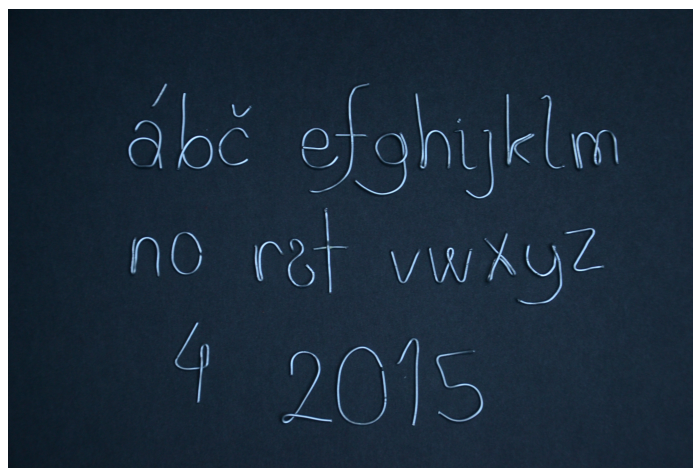 ábč efghijklm
no rst vwxyz
4 2015